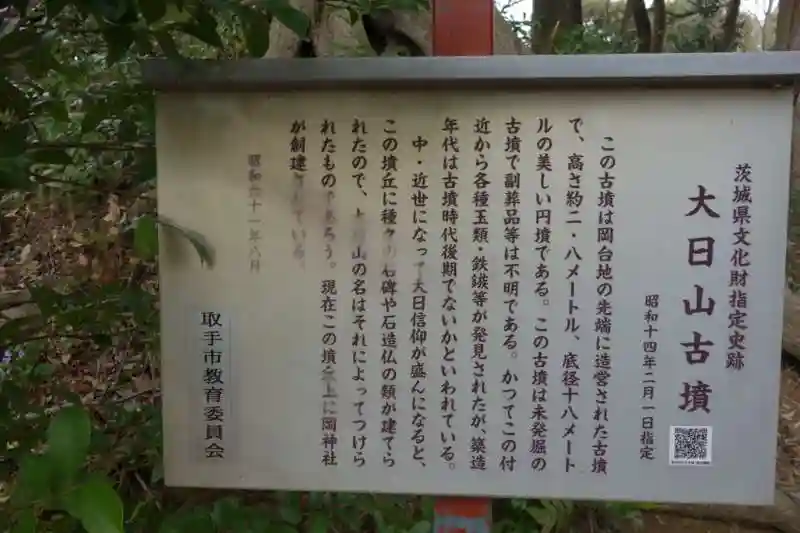 茨城県文化財指定史跡
大日山古墳
昭和十四年二月一日指定
この古墳は岡台地の先端に造営された古墳
で、高さ約二・八メートル、底径十八メート
ルの美しい円墳である。この古墳は未発掘の
古墳で副葬品等は不明である。かつてこの付
近から各種玉類・鉄鏃等が発見されたが、築造
年代は古墳時代後期でないかといわれている。
中・近世になって大日信仰が盛んになると、
この墳丘に種々の石碑や石造仏の類が建てら
れたので、大日山の名はそれによってつけら
れたものであろう。現在この墳丘上に岡神社
が創建されている。
昭和六十一年八月
取手市教育委員会